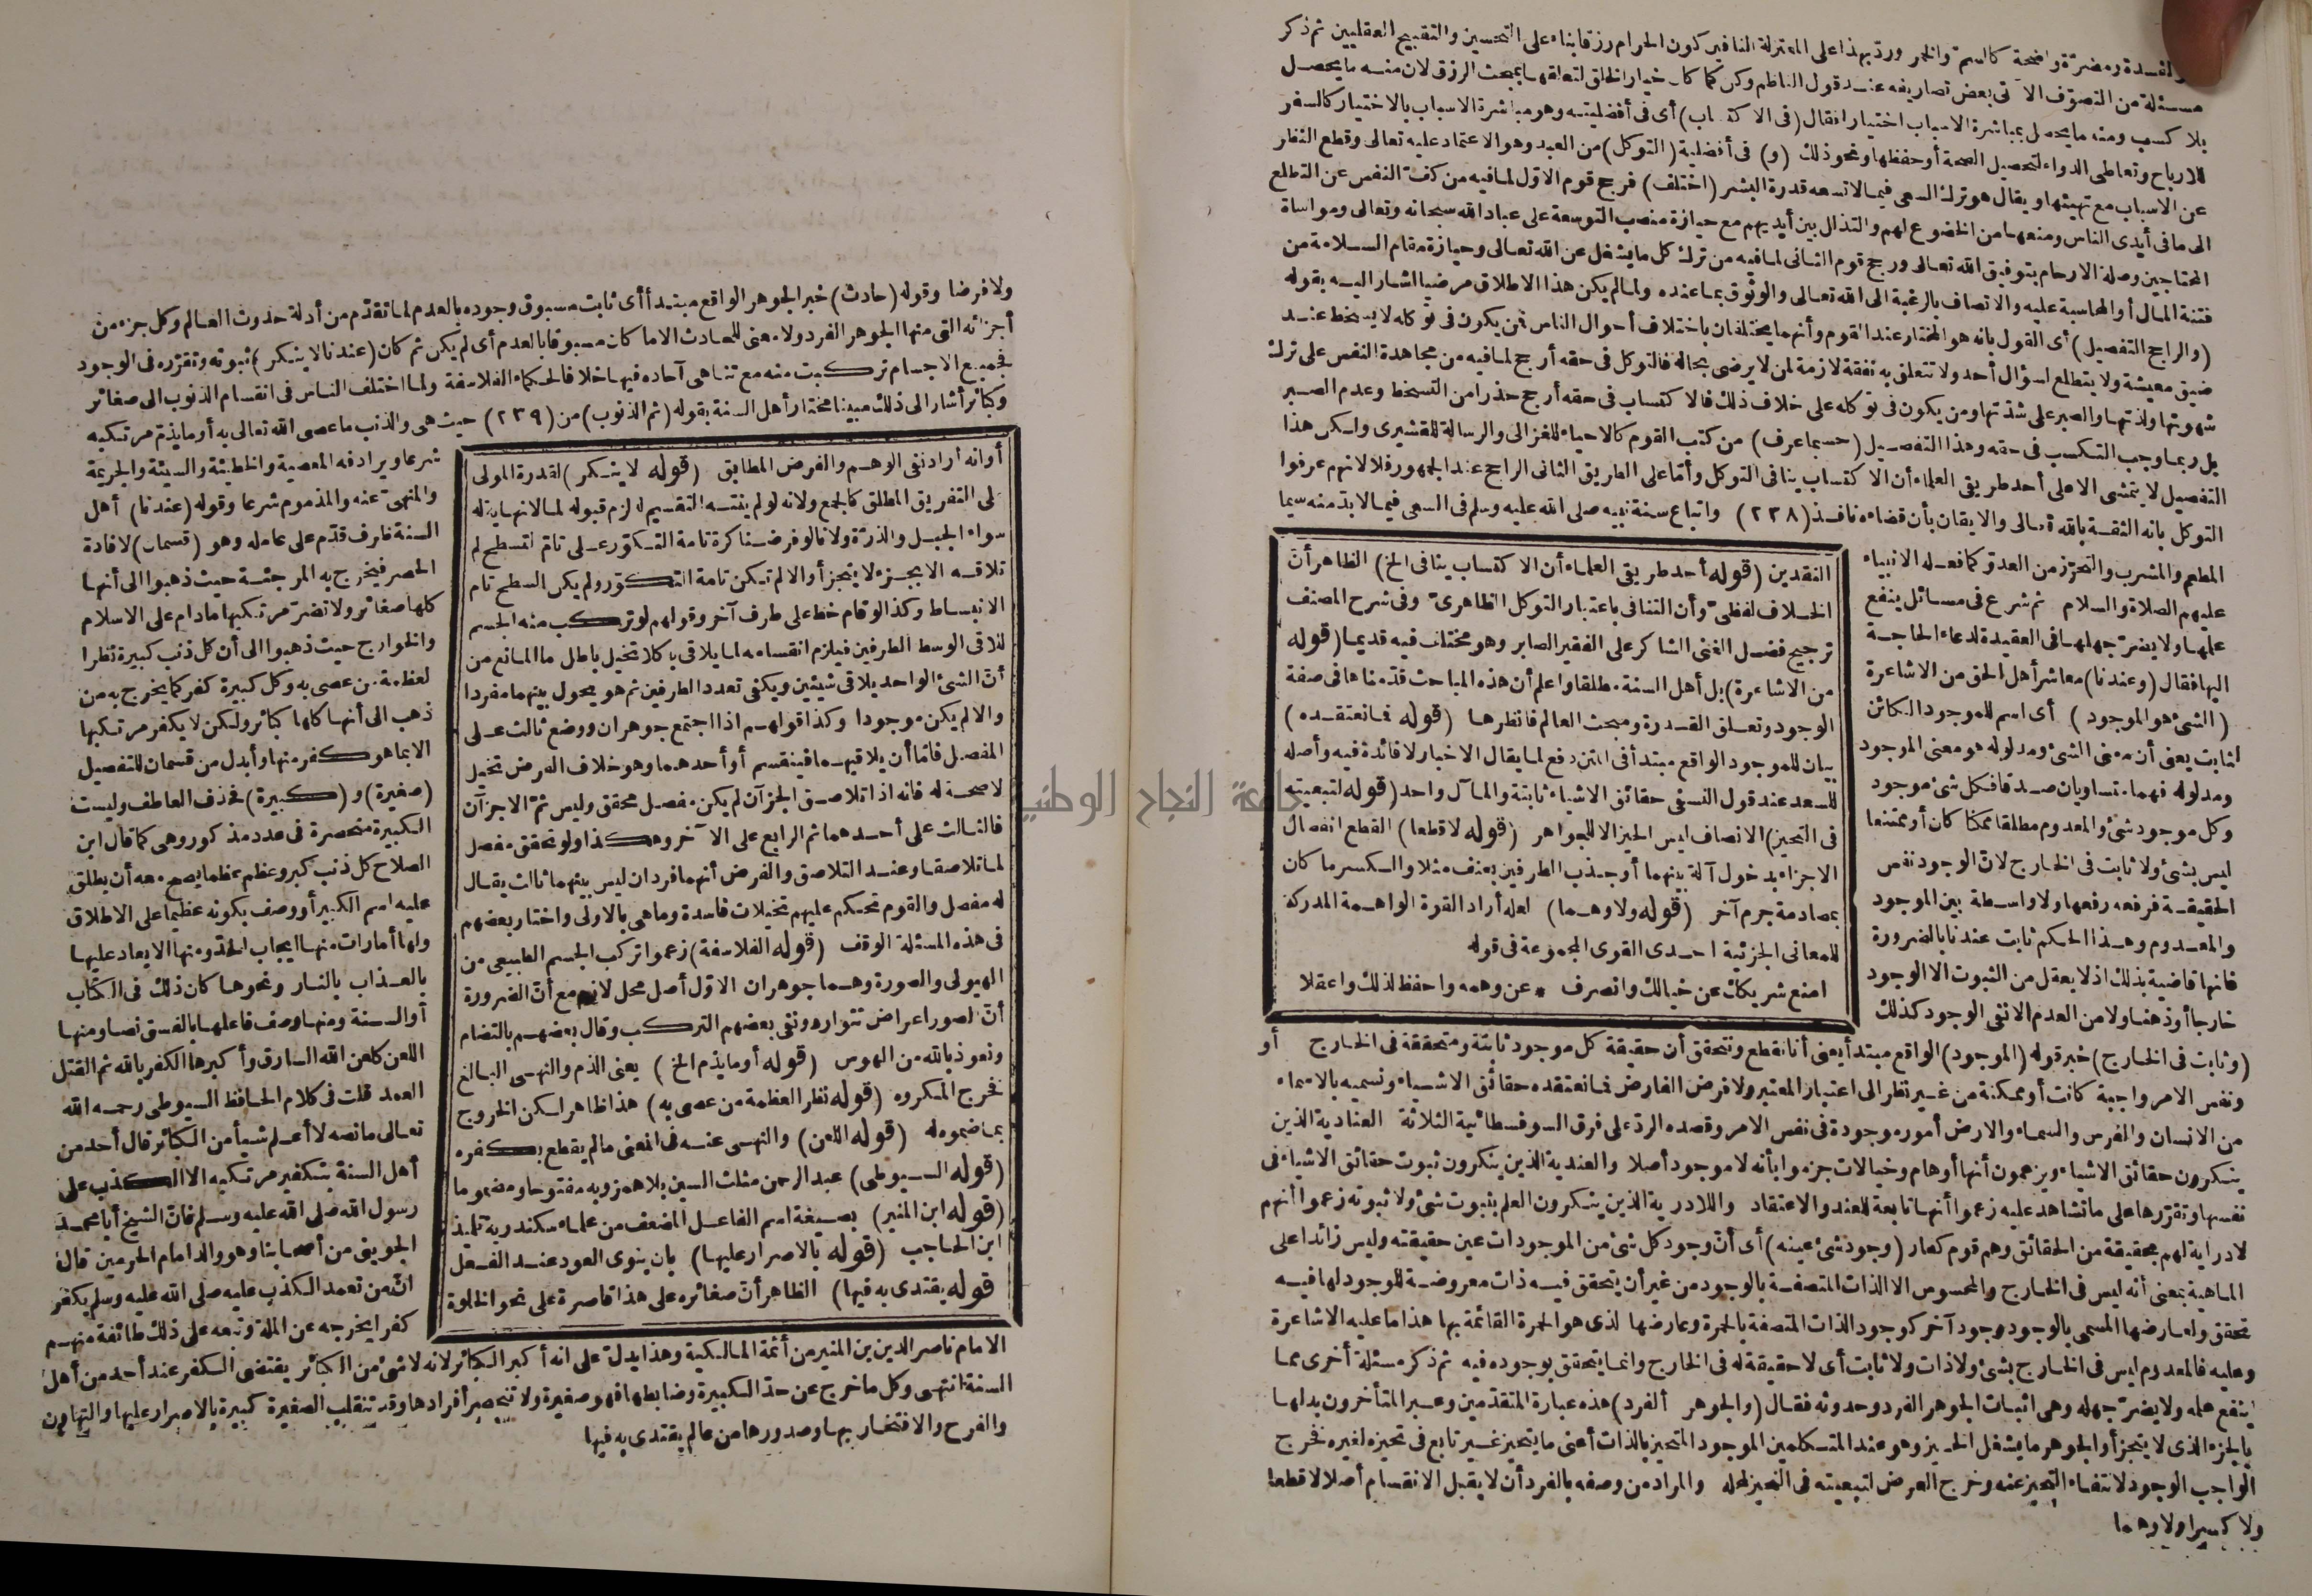 لمفسدة ومضرة واضحة كالسم والخمر وردّ بهذا على المعتزلة النافين كون الحرام رزقا بناء على التحسين والتقبيح العقليين ثم ذكر
مسئلة من التصوّف الآتى بعض تصاريفه عند قول الناظم وكن كما كان خيار الخلق لتعلقها بمبحث الرزق لان منه ما يحصل
بلا كسب ومنه ما يحصل بمباشرة الاسباب اختيارا فقال (فى الاكتساب) أى فى أفضليته وهو مباشرة الاسباب بالاختيار كالسفر
للارباح وتعاطى الدواء لتحصيل الصحة أو حفظها ونحو ذلك (و) فى أفضلية (التوكل) من العبد وهو الاعتماد عليه تعالى وقطع النظر
عن الاسباب مع تهيئها ويقال هو ترك السعى فيما لا تسعه قدرة البشر (اختلف) فرجح قوم الاوّل لما فيه من كفّ النفس عن التطلع
الى ما فى أيدى الناس ومنعها من الخضوع لهم والتذلل بين أيديهم مع حيازة منصب التوسعة على عباد الله سبحانه وتعالى ومواساة
المحتاجين وصلة الارحام بتوفيق الله تعالى ورجح قوم الثانى لما فيه من ترك كل ما يشغل عن الله تعالى وحيازة مقام السلامة من
فتنة المال أو المحاسبة عليه والاتصاف بالرغبة الى الله تعالى والوثوق بما عنده ولما لم يكن هذا الاطلاق مرضيا أشار اليه بقوله
(والراجح التفصيل) أى القول بانه هو المختار عند القوم وأنهما يختلفان باختلاف أحوال الناس فمن يكون فى توكله لا يسخط عند
ضيق معيشة ولا يتطلع لسؤال أحد ولا تتعلق به نفقة لازمة لمن لا يرضى بحاله فالتوكل فى حقه أرجح لما فيه من مجاهدة النفس على ترك
شهوتها ولذتها والصبر على شدّتها ومن يكون فى توكله على خلاف ذلك فالاكتساب فى حقه أرجح حذرا من التسخط وعدم الصبر
بل ربما وجب التكسب فى حقه وهذا التفصيل (حسبما عرف) من كتب القوم كالاحياء للغزالى والرسالة للقشيرى ولكن هذا
التفصيل لا يتمشى الا على أحد طريقى العلماء أن الاكتساب ينافى التوكل وأمّا على الطريق الثانى الراجح عند الجمهور فلا لانهم عرفوا
التوكل بانه الثقة بالله تعالى والايقان بأن قضاءه نافذ (٢٣٨) واتباع سنة نبيه صلى الله عليه وسلم فى السعى فيما لا بدّ منه سيما
المطعم والمشرب والتحرّز من العدوّ كما فعله الانبياء
عليهم الصلاة والسلام ثم شرع فى مسائل ينفع
علمها ولا يضرّ جهلها فى العقيدة لدعاء الحاجة
اليها فقال (وعندنا) معاشر أهل الحق من الاشاعرة
(الشئ هو الموجود) أى اسم للموجود الكائن
الثابت يعنى أن معنى الشئ ومدلوله هو معنى الموجود
ومدلوله فهما متساويان صدقا فكل شئ موجود
وكل موجود شئ والمعدوم مطلقا ممكنا كان أو ممتنعا
ليس بشئ ولا ثابت فى الخارج لانّ الوجود نفس
الحقيقة فرفعه رفعها ولا واسطة بين الموجود
والمعدوم وهذا الحكم ثابت عندنا بالضرورة
فانها قاضية بذلك اذ لا يعقل من الثبوت الا الوجود
خارجا أو ذهنا ولا من العدم الا نفى الوجود كذلك
النقدين (قوله أحد طريقى العلماء أن الاكتساب ينافى الخ) الظاهر أنّ
الخلاف لفظىّ وأن التنافى باعتبار التوكل الظاهرىّ وفى شرح المصنف
ترجيح فضل الغنى الشاكر على الفقير الصابر وهو مختلف فيه قديما (قوله
من الاشاعرة) بل أهل السنة مطلقا واعلم أن هذه المباحث قدّمناها فى صفة
الوجود وتعلق القدرة ومبحث العالم فانظرها (قوله فما نعتقده)
بيان للموجود الواقع مبتدأ فى المتن دفع لما يقال الاخبار لا فائدة فيه وأصله
للسعد عند قول النسفى حقائق الاشياء ثابتة والمآل واحد (قوله لتبعيته
فى التحيز) الانصاف ليس الحيز الا للجواهر (قوله لا قطعا) القطع انفصال
الاجزاء بدخول آلة بينهما أو جذب الطرفين بعنف مثلا والكسر ما كان
بمصادمة جرم آخر (قوله ولا وهما) لعله أراد القوة الواهمة المدركة
للمعانى الجزئية احدى القوى المجموعة فى قوله
امنع شريكك عن خيالك وانصرف * عن وهمه واحفظ لذلك واعقلا
(وثابت فى الخارج) خبر قوله (الموجود) الواقع مبتدأ يعنى أنا نقطع ونتحقق أن حقيقة كل موجود ثابتة ومتحققة فى الخارج أو
ونفس الامر واجبة كانت أو ممكنة من غير نظر الى اعتبار المعتبر ولا فرض الفارض فما نعتقده حقائق الاشياء ونسميه بالاسماء
من الانسان والفرس والسماء والارض أمور موجودة فى نفس الامر وقصده الردّ على فرق السوفسطائية الثلاثة العنادية الذين
ينكرون حقائق الاشياء ويزعمون أنها أوهام وخيالات جزموا بأنه لا موجود أصلا والعندية الذين ينكرون ثبوت حقائق الاشياء فى
نفسها وتقرّرها على ما تشاهد عليه زعموا أنها تابعة للعند والاعتقاد واللادرية الذين ينكرون العلم بثبوت شئ ولا ثبوته زعموا أنهم
لا دراية لهم بحقيقة من الحقائق وهم قوم كفار (وجود شئ عينه) أى أنّ وجود كل شئ من الموجودات عين حقيقته وليس زائدا على
الماهية بمعنى أنه ليس فى الخارج والمحسوس الا الذات المتصفة بالوجود من غير أن يتحقق فيه ذات معروضة للوجود لها فيه
تحقق ولعارضها المسمى بالوجود وجود آخر كوجود الذات المتصفة بالحمرة وعارضها الذى هو الحمرة القائمة بها هذا ما عليه الاشاعرة
وعليه فالمعدوم ليس فى الخارج بشئ ولا ذات ولا ثابت أى لا حقيقة له فى الخارج وانما يتحقق بوجوده فيه ثم ذكر مسئلة أخرى مما
ينفع علمه ولا يضرّ جهله وهى اثبات الجوهر الفرد وحدوثه فقال (والجوهر الفرد) هذه عبارة المتقدّمين وعبر المتأخرون بدلها
بالجزء الذى لا يتجزأ والجوهر ما يشغل الحيز وهو عند المتكلمين الموجود المتحيز بالذات أعنى ما يتحيز غير تابع فى تحيزه لغيره فخرج
الواجب الوجود لانتفاء التحيز عنه وخرج العرض لتبعيته فى التحيز لمحله والمراد من وصفه بالفرد أن لا يقبل الانقسام أصلا لا قطعا
ولا كسرا ولا وهما
ولا فرضا وقوله (حادث) خبر الجوهر الواقع مبتدأ أى ثابت مسبوق وجوده بالعدم لما تقدّم من أدلة حدوث العالم وكل جزء من
أجزائه التى منها الجوهر الفرد ولا معنى للحادث الا ما كان مسبوقا بالعدم أى لم يكن ثم كان (عندنا لا ينكر) ثبوته وتقرّره فى الوجود
فجميع الاجسام تركبت منه مع تناهى آحاده فيها خلافا لحكماء الفلاسفة ولما اختلف الناس فى انقسام الذنوب الى صغائر
وكبائر أشار الى ذلك مبينا مختار أهل السنة بقوله (ثم الذنوب) من (٢٣٩) حيث هى والذنب ما عصى الله تعالى به أو ما يذمّ مرتكبه
شرعا ويرادفه المعصية والخطيئة والسيئة والجريمة
والمنهىّ عنه والمذموم شرعا وقوله (عندنا) أهل
السنة ظرف قدّم على عامله وهو (قسمان) لافادة
الحصر فيخرج به المرجئة حيث ذهبوا الى أنها
كلها صغائر ولا تضرّ مرتكبها ما دام على الاسلام
والخوارج حيث ذهبوا الى أن كل ذنب كبيرة نظرا
لعظمة من عصى به وكل كبيرة كفر كما يخرج به من
ذهب الى أنها كلها كبائر ولكن لا يكفر مرتكبها
الا بما هو كفر منها وأبدل من قسمان للتفصيل
(صغيرة) و (كبيرة) فحذف العاطف وليست
الكبيرة منحصرة فى عدد مذكور وهى كما قال ابن
الصلاح كل ذنب كبر وعظم عظما يصح معه أن يطلق
عليه اسم الكبير أو وصف بكونه عظيما على الاطلاق
ولها أمارات منها ايجاب الحدّ ومنها الايعاد عليها
بالعذاب بالنار ونحوها كان ذلك فى الكتاب
أو السنة ومنها وصف فاعلها بالفسق نصا ومنها
اللعن كلعن الله السارق وأكبرها الكفر بالله ثم القتل
العمد قلت فى كلام الحافظ السيوطى رحمه الله
تعالى ما نصه لا أعلم شيأ من الكبائر قال أحد من
أهل السنة بتكفير مرتكبه الا الكذب على
رسول الله صلى الله عليه وسلم فانّ الشيخ أبا محمد
الجوينى من أصحابنا وهو والد امام الحرمين قال
انّ من تعمد الكذب عليه صلى الله عليه وسلم يكفر
كفرا يخرجه عن الملة وتبعه على ذلك طائفة منهم
أو انه أراد نفى الوهم والفرض المطابق (قوله لا ينكر) لقدرة المولى
على التفريق المطلق كالجمع ولانه لو لم ينته التقسيم لزم قبوله لما لا نهاية له
سواء الجبل والذرّة ولانا لو فرضنا كرة تامة التكوّر على تامّ التسطيح لم
تلاقه الا بجزء لا يتجزأ والا لم تكن تامة التكوّر ولم يكن السطح تام
الانبساط وكذا لو قام خط على طرف آخر وقولهم لو تركب منه الجسم
للاقى الوسط الطرفين فيلزم انقسامه لما يلاقى به كلا تخيل باطل ما المانع من
أنّ الشئ الواحد يلاقى شيئين ويكفى تعدد الطرفين ثم هو يحول بينهما مفردا
والا لم يكن موجودا وكذا قولهم اذا اجتمع جوهران ووضع ثالث على
المفصل فامّا أن يلاقيهما فينقسم أو أحدهما وهو خلاف الفرض تخيل
لا صحة له فانه اذا تلاصق الجزآن لم يكن مفصل محقق وليس ثمّ الا جزآن
فالثالث على أحدهما ثم الرابع على الآخر وهكذا ولو تحقق مفصل
لما تلاصقا وعند التلاصق والفرض أنهما فردان ليس بينهما ثالث يقال
له مفصل والقوم تحكم عليهم تخيلات فاسدة وما هى بالاولى واختار بعضهم
فى هذه المسئلة الوقف (قوله الفلاسفة) زعموا تركب الجسم الطبيعى من
الهيولى والصورة وهما جوهران الاوّل أصل محل لانهم مع أنّ الضرورة
أنّ الصور اعراض تتوارد ونفى بعضهم التركب وقال بعضهم بالتضام
ونعوذ بالله من الهوس (قوله أو ما يذم الخ) يعنى الذم والنهى البالغ
فخرج المكروه (قوله نظر العظمة من عصى به) هذا ظاهر لكن الخروج
بما ضموه له (قوله اللعن) والنهى عنه فى المعنى ما لم يقطع بكفره
(قوله السيوطى) عبد الرحمن مثلث السين بلا همز وبه مفتوحا ومضموما
(قوله ابن المنير) بصيغة اسم الفاعل المضعف من علماء سكندرية تلميذ
ابن الحاجب (قوله بالاصرار عليها) بان ينوى العود عند الفعل
قوله يقتدى به فيها) الظاهر أنّ صغائره على هذا قاصرة على نحو الخلوة
الامام ناصر الدين بن المنير من أئمة المالكية وهذا يدلّ على انه أكبر الكبائر لانه لا شئ من الكبائر يقتضى الكفر عند أحد من أهل
السنة انتهى وكل ما خرج عن حدّ الكبيرة وضابطها فهو صغيرة ولا تنحصر أفرادها وقد تنقلب الصغيرة كبيرة بالاصرار عليها والتهاون
والفرح والافتخار بها وصدورها من عالم يقتدى به فيها
جامعة النجاح الوطنية